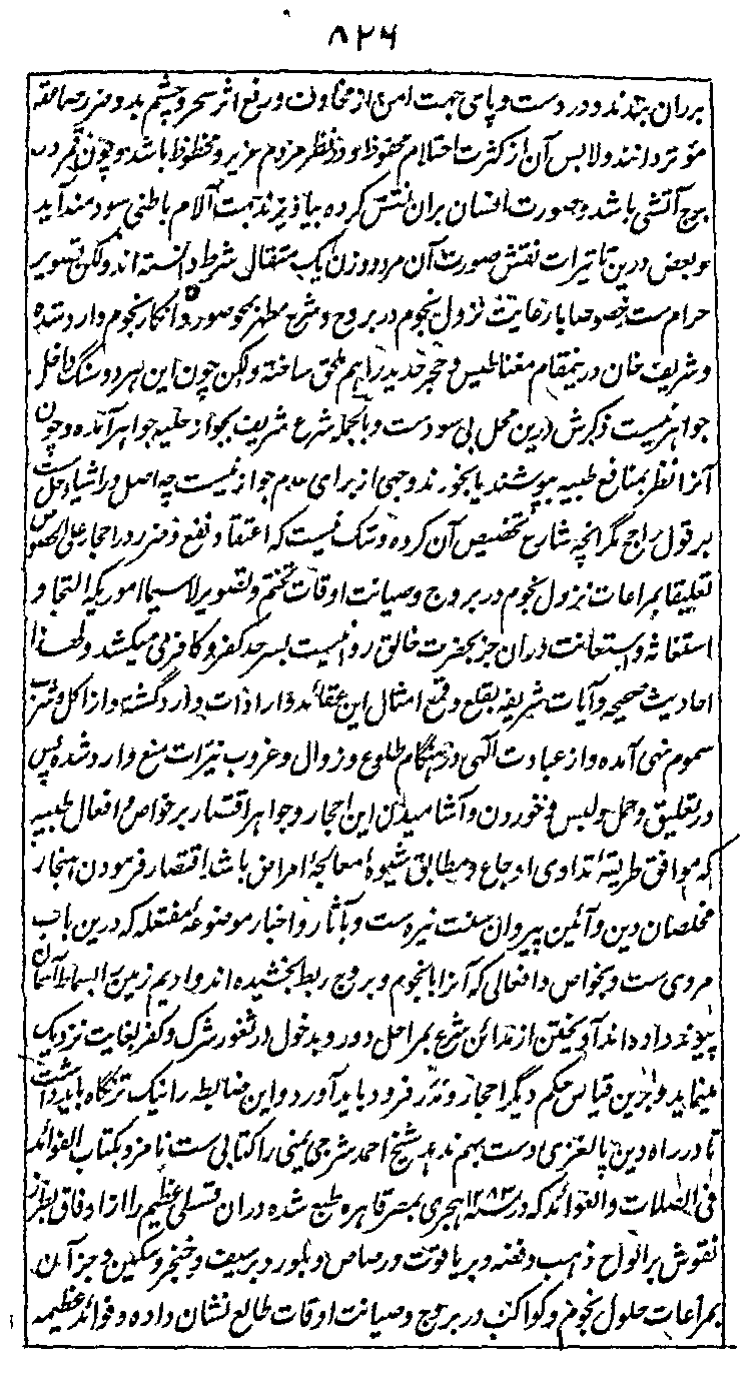 ۸۲۶
بر ران بندند و در دست و پای جهت امن از مخاوف و رفع اثر سحر و چشم بد و ضرر صاعقه
مؤثر دانند و لابس آن از کثرت احتلام محفوظ و در نظر مردم عزیز و محظوظ باشد و چون قمر در
برج آتشی باشد و صورت انسان بران نقش کرده بیاویزند جهت آلام باطنی سودمند آید
و بعض درین تاثیرات نقش صورت آن مرد و زن یک مثقال شرط دانسته اند ولکن تصویر
حرام ست خصوصا با رعایت نزول نجوم در بروج و شرع مطهر بمحو صور و انکار نجوم وارد شده
و شریف خان درینمقام مغناطیس و حجر حدید را هم ملحق ساخته ولکن چون این هر دو سنگ داخل
جواهر نیست ذکرش درین محل بی سود ست و بالجمله شرع شریف بجواز حلیه جواهر آمده و چون
آنرا نظر بمنافع طبیه بپوشند یا بخورند وجهی از برای عدم جواز نیست چه اصل در اشیاء حل ست
بر قول راجح مگر آنچه شارع تخصیص آن کرده و شک نیست که اعتقاد نفع و ضرر در احجار علی الخصوص
تعلیقا بمراعات نزول نجوم در بروج و صیانت اوقات تختم و تصویر لاسیما اموریکه التجا و
استغاثه و استعانت دران جز بحضرت خالق روا نیست بسر حد کفر و کافری میکشد و لهذا
احادیث صحیحه و آیات شریفه بقلع و قمع امثال این عقائد و ارادات وارد گشته و از اکل و شرب
سموم نهی آمده و از عبادت الهی در هنگام طلوع و زوال و غروب نیرات منع وارد شده پس
در تعلیق و حمل و لبس و خوردن و آشامیدن این احجار و جواهر اقتصار بر خواص و افعال طبیه
که موافق طریقهٔ تداوی اوجاع و مطابق شیوهٔ معالجهٔ امراض باشد اقتصار فرمودن هنجار
مخلصان دین و آئین پیروان سنت نیره ست و بآثار و اخبار موضوعهٔ مفتعله که درین باب
مروی ست و بخواص و افعالی که آنرا با نجوم و بروج ربط بخشیده اند و ادیم زمین به بساط آسمان
پیوند داده اند آویختن از مدائن شرع بمراحل دور و بدخول در ثغور شرک و کفر بغایت نزدیک
مینماید و برین قیاس حکم دیگر احجار و نذر فرود باید آورد و این ضابطه را نیک نگاه باید داشت
تا در راه دین پا لغزی دست بهم ندهد شیخ احمد شرجی یمنی را کتابی ست نامزد بکتاب الفوائد
فی الصلات والعوائد که در سنه ۱۲۸۳ هجری بمصر قاهره طبع شده دران قسطی عظیم را از اوفاق بطراز
نقوش بر الواح ذهب و فضه و بر یاقوت و رصاص و بلور و بر سیف و خنجر و سکین و جز آن
بمراعات حلول نجوم و کواکب در بروج و صیانت اوقات طالع نشان داده و فوائد عظیمه